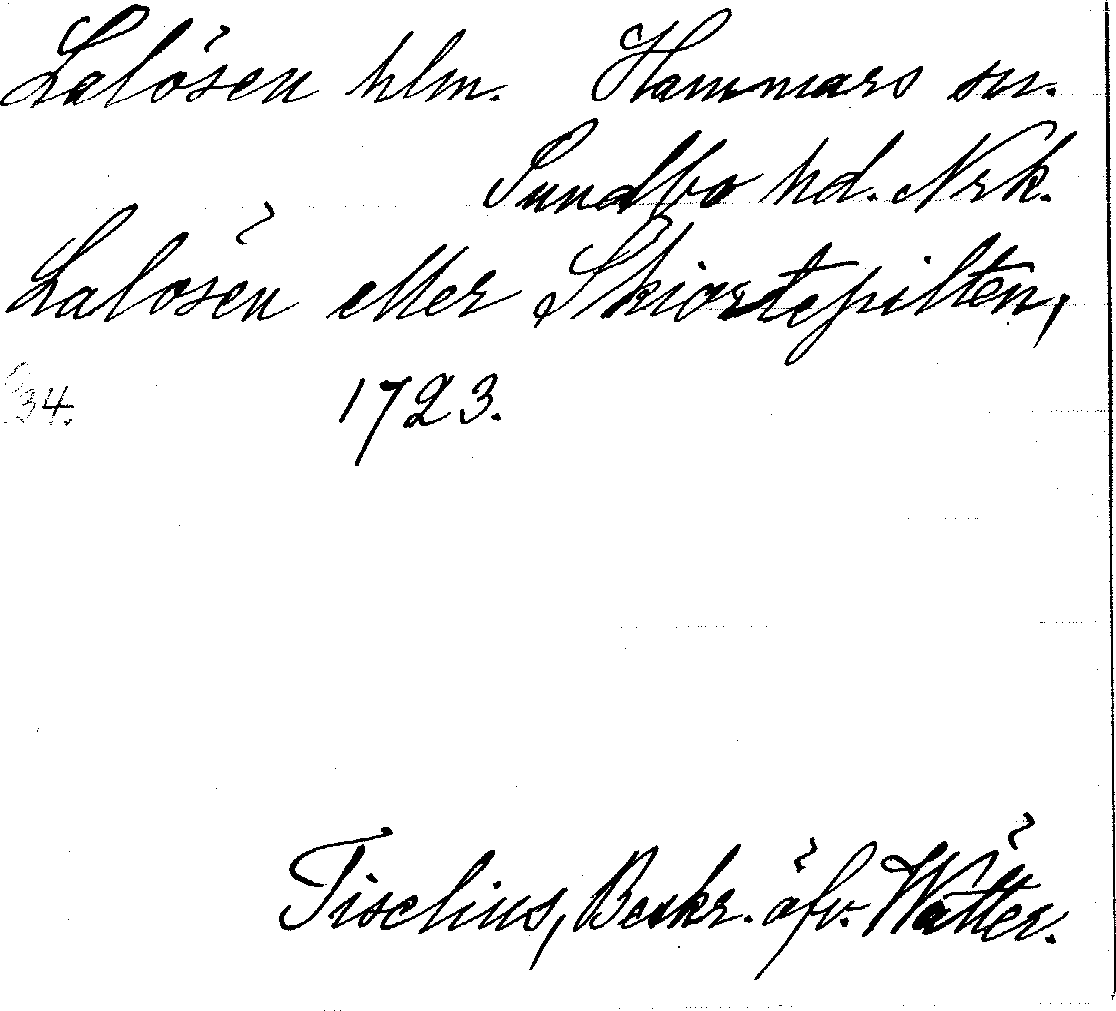 Lalösen hlm. Hammars sn.
Sundbo hd. Nrk.
Lalösen eller Skiortepilten,
34. 1723.
Tiselius, Beskr. öfv. Wätter.